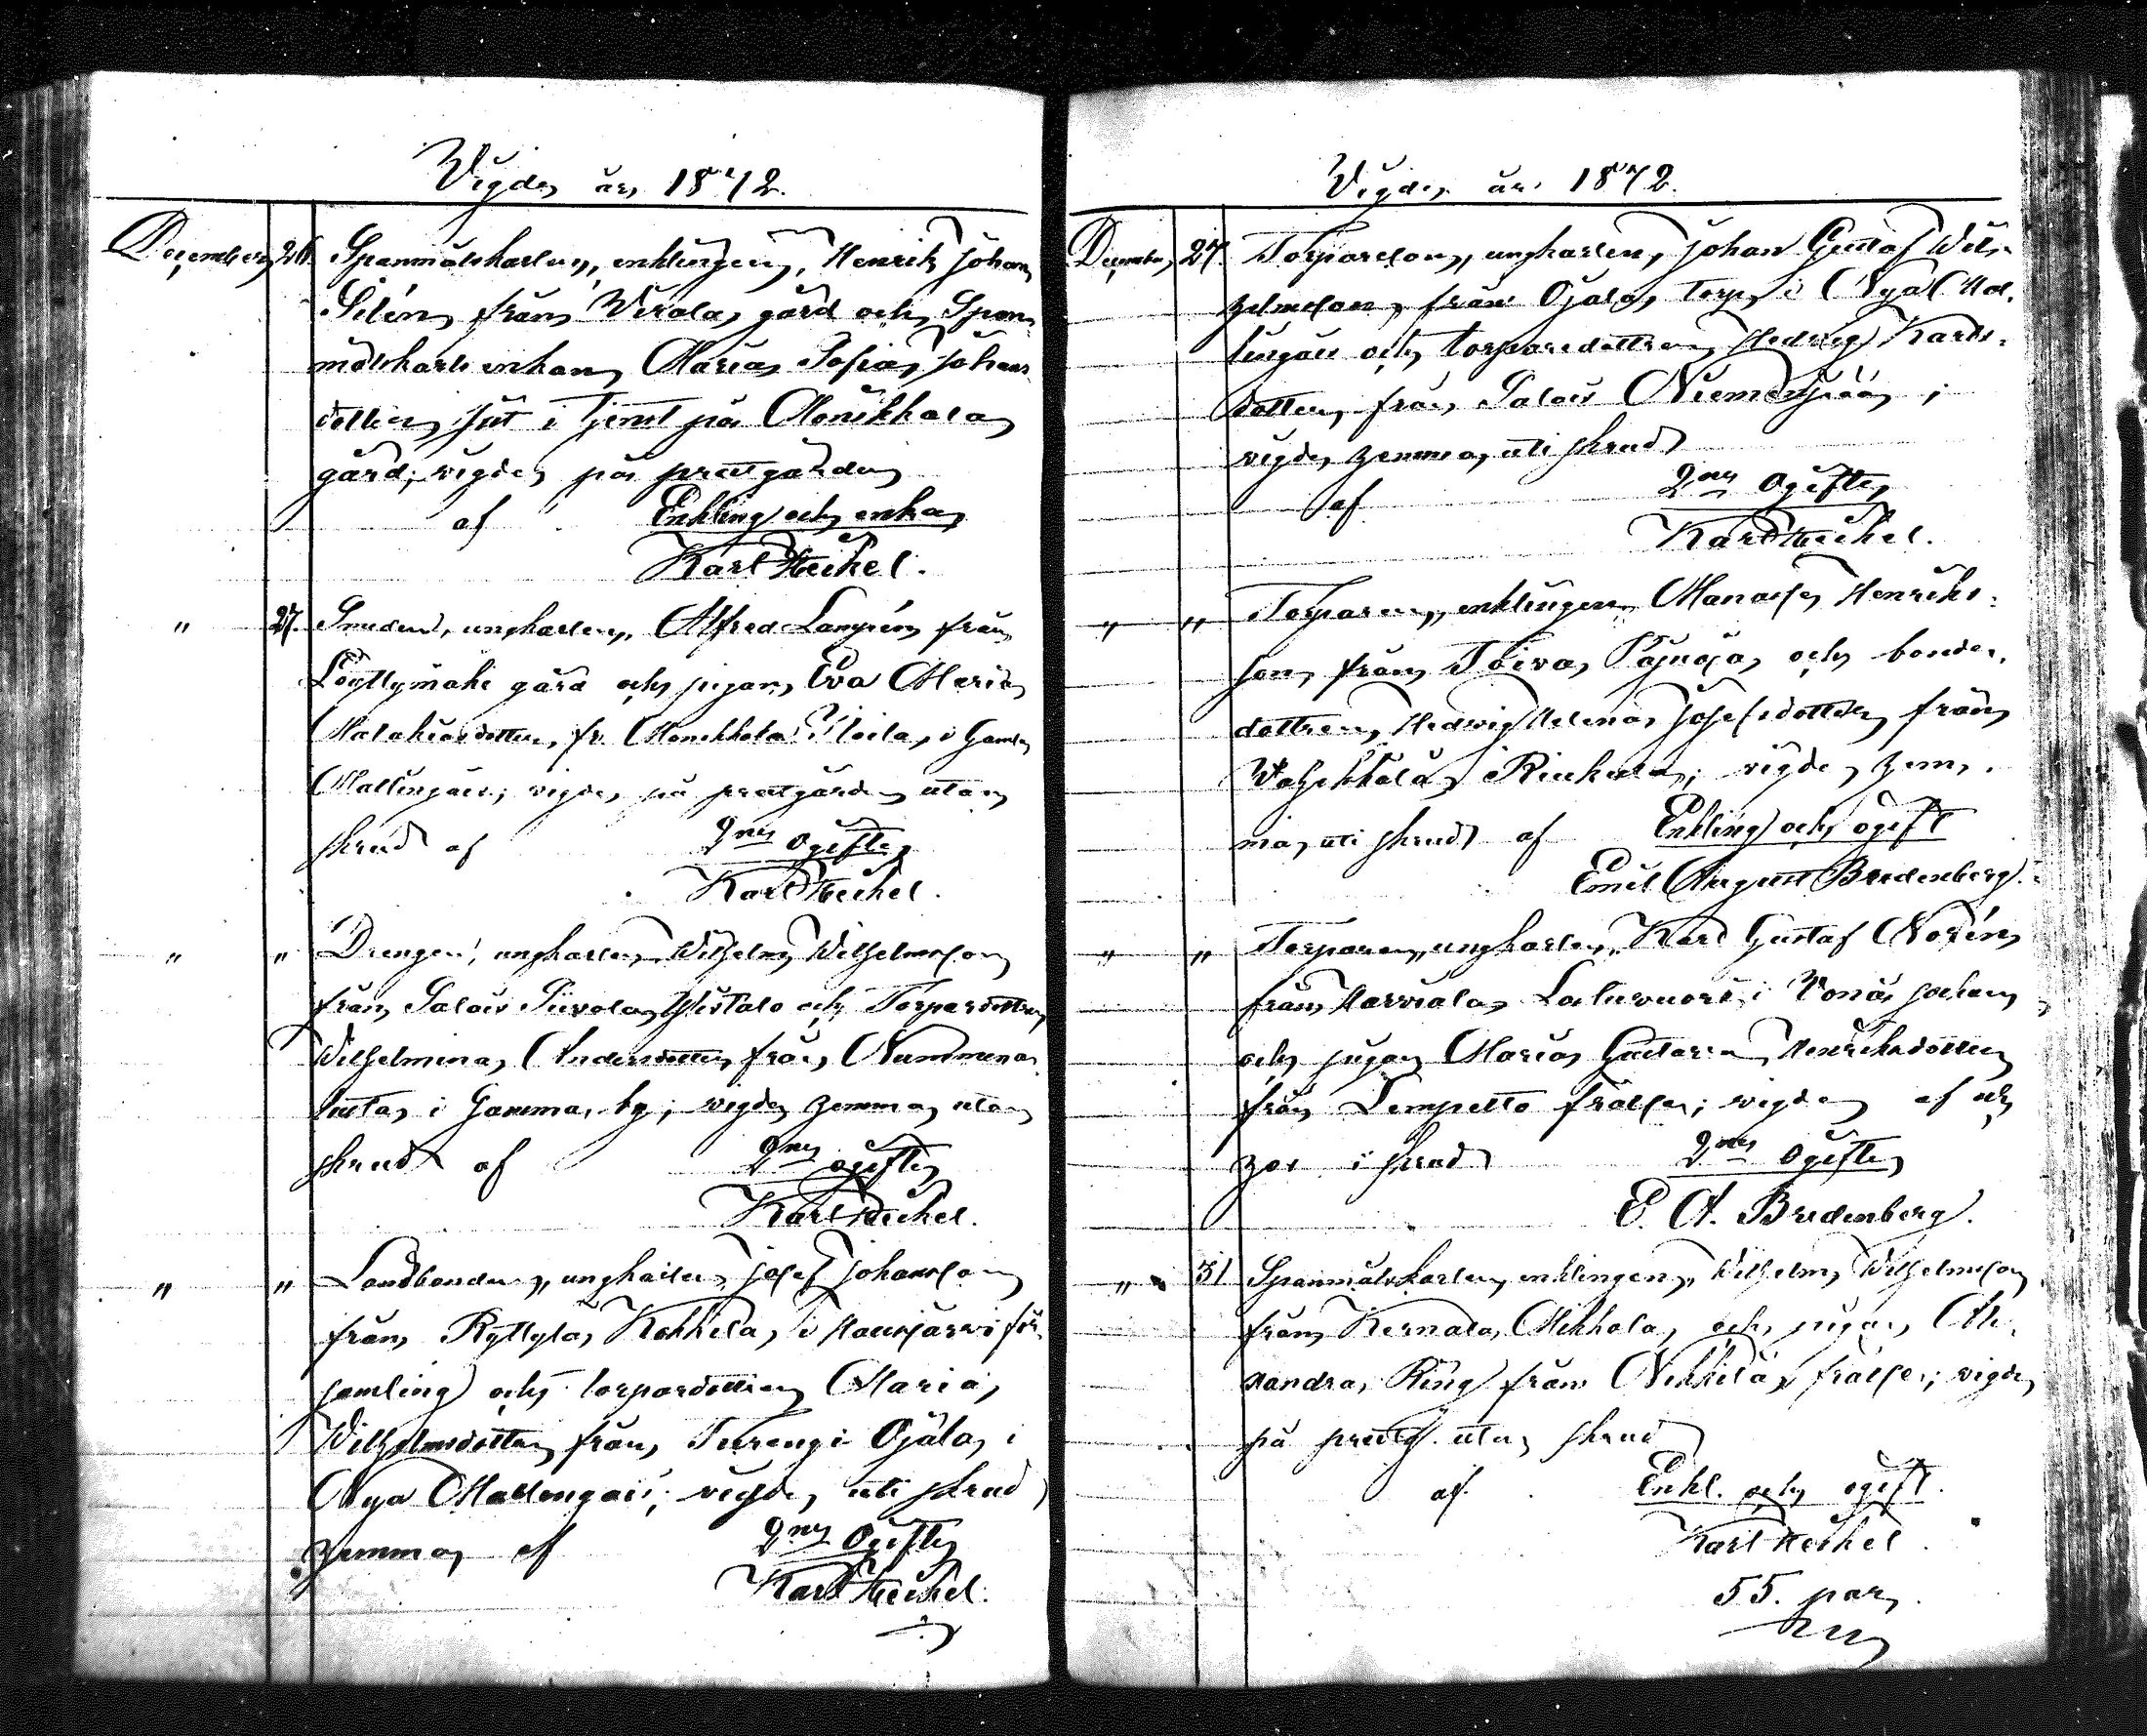 Vigde år 1872.
December 26. Spanmålskarlen, enklingen, Henrik Johan
Silén från Virala gård och Span-
målskarls enkan Maria Sofia Johans-
dotter, sist i tjenst på Monikkala
gård; vigde på prestgården
af Enkling och enka
Karl Heikel.
" 27. Smeden, ungkarlen, Alfred Lampén från
Löyttymäki gård och pigan Eva Maria
Malakiasdotter, fr. Monikkala Yloila, i Gamla
Mallingais; vigde på prestgården utan
skrud af 2ne Ogifte
Karl Heikel.
" " Drengen, ungkarlen, Wilhelm Wilhelmsson
från Salois Piivola Ylistalo och Torpardottren
Wilhelmina Andersdotter från Nummen-
lusta, i Hamma by; vigde hemma utan
skrud af 2ne ogifte
Karl Heikel.
" " Landbonden, ungkarlen, Josef Johansson
från Ryttylä, Kokkila, i Hausjärvi för-
samling och torpardottren Maria
Wilhelmsdotter från Turengi Ojala, i
Nya Mallengais; vigde, uti skrud
hemma af 2ne Ogifte
Karl Heikel.
Vigde år 1872.
December 27. Torparsson, ungkarlen, Johan Gustaf Wil-
helmsson från Ojala torp, i Nya Mal-
lingais och torparedottren Hedvig Karls-
dotter, från Salois Niemenpää;
vigde hemma, uti skrud
af 2ne Ogifte
Karl Heikel.
" " Torparen, enklingen, Manasse Henriks-
son, från Toivo, Pajuoja, och bonde-
dottren, Hedvig Helena Josefsdotter från
Wähikkälä, Riukula; vigde hem-
ma, uti skrud af Enkling och ogift
Emil August Bredenberg.
" " Torparen, ungkarlen, Karl Gustaf Norén
från Harviala, Laluvuori, i Vånå socken
och pigan Maria Gustava Henriksdotter
från Tempelto frälse; vigde af
i skrud 2ne Ogifte
E. A. Bredenberg.
" 31 Spanmålskarlen, enklingen, Wilhelm Wilhelmsson
från Kernala, Mikkola, och pigan Alek-
sandra Ring från Nikkilä frälse; vigde
på prestg. utan skrud
af Enkl. och ogift.
Karl Heikel.
55. par.